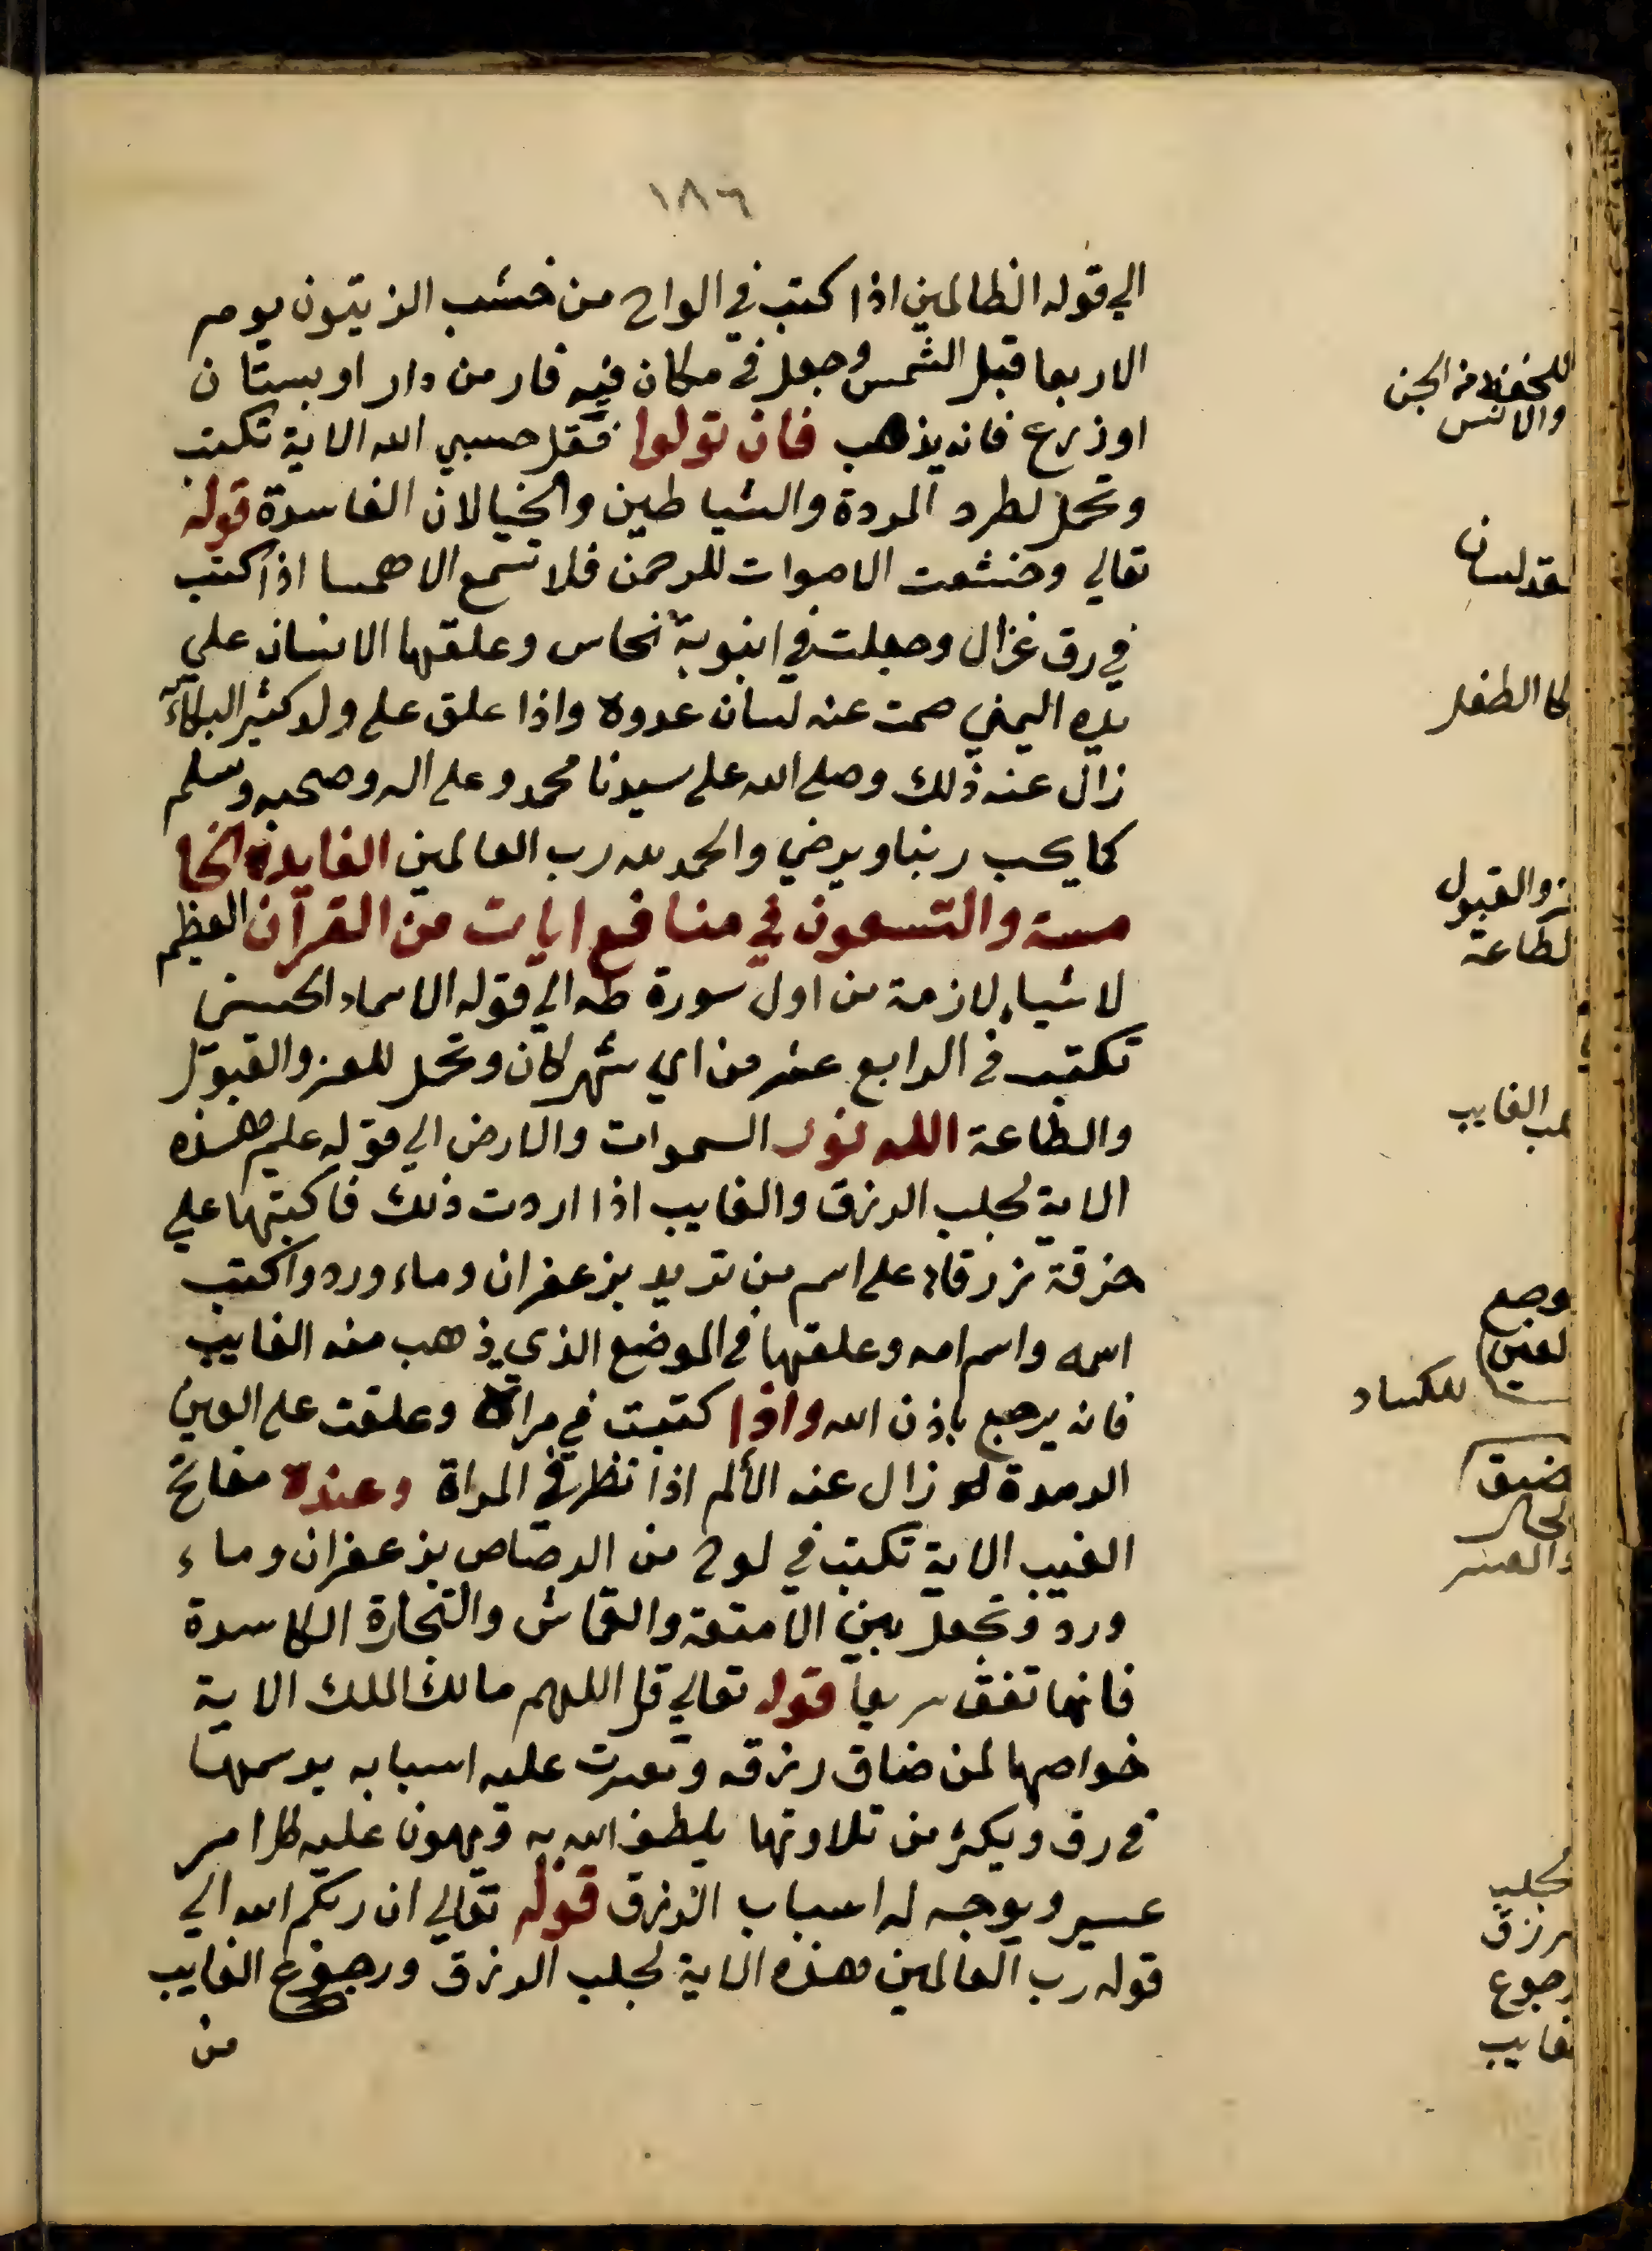 ١٨٦
الي قوله الظالمين اذا كتب في الواح من خشب الزيتون يوم
الاربعا قبل الشمس وجعل في مكان فيه فار من دار او بستان
او زرع فانه يذهب فان تولوا فقل حسبي الله الاية تكتب
وتحمل لطرد المردة والشياطين والخيالان الفاسدة قوله
تعالي وخشعت الاصوات للرحمن فلا تسمع الا همسا اذا كتب
في رق غزال وجعلت في انبوبة نحاس وعلقها الانسان علي
يده اليمني صمت عنه لسان عدوه واذا علق علي ولد كثير البكاء
زال عنه ذلك وصلي الله علي سيدنا محمد وعلي اله وصحبه وسلم
كما يحب ربنا ويرضي والحمد لله رب العالمين الفايدة الخا
مسة والتسعون في منافع ايات من القرآن العظيم
لاشياء لازمة من اول سورة طه الي قوله الاسماء الحسني
تكتب في الرابع عشر من اي شهر كان وتحمل للعز والقبول
والطاعة الله نور السموات والارض الي قوله عليم هذه
الاية لجلب الرزق والغايب اذا اردت ذلك فاكتبها علي
خرقة زرقاء علي اسم من تريد بزعفران وماء ورد واكتب
اسمه واسم امه وعلقها في الموضع الذي ذهب منه الغايب
فانه يرجع باذن الله واذا كتبت في مراة وعلقت علي العين
الرمدة زال عنه الألم اذا نظر في المراة وعنده مفاتح
الغيب الاية تكتب في لوح من الرصاص بزعفران وماء
ورد وتجعل بين الامتعة والقماش والتجارة الكاسدة
فانها تنفق سريعا قوله تعالي قل اللهم مالك الملك الاية
خواصها لمن ضاق رزقه وتعسرت عليه اسبابه يرسمها
في رق ويكثر من تلاوتها يلطف الله به ويهون عليه كل امر
عسير ويوجه له اسباب الرزق قوله تعالي ان ربكم الله الي
قوله رب العالمين هذه الاية لجلب الرزق ورجوع الغايب
من
للحفظ من الجن
والانس
لعقد لسان
لبكا الطفل
للعز والقبول
والطاعة
لجلب الغايب
لوجع
العين
للكساد
لضيق
الحال
والعسر
لجلب
الرزق
ورجوع
الغايب